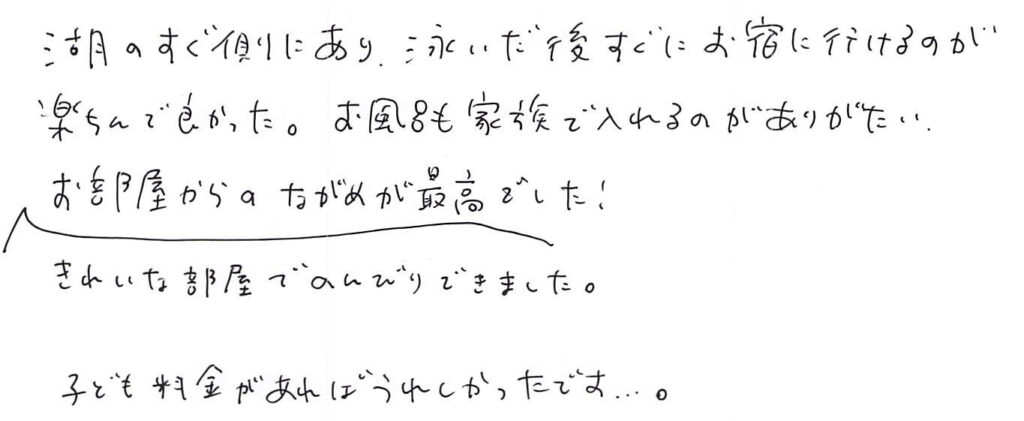 湖のすぐ側にあり、泳いだ後すぐにお宿に行けるのが
楽ちんで良かった。お風呂も家族で入れるのがありがたい。
お部屋からのながめが最高でした!
きれいな部屋でのんびりできました。
子ども料金があればうれしかったです…。